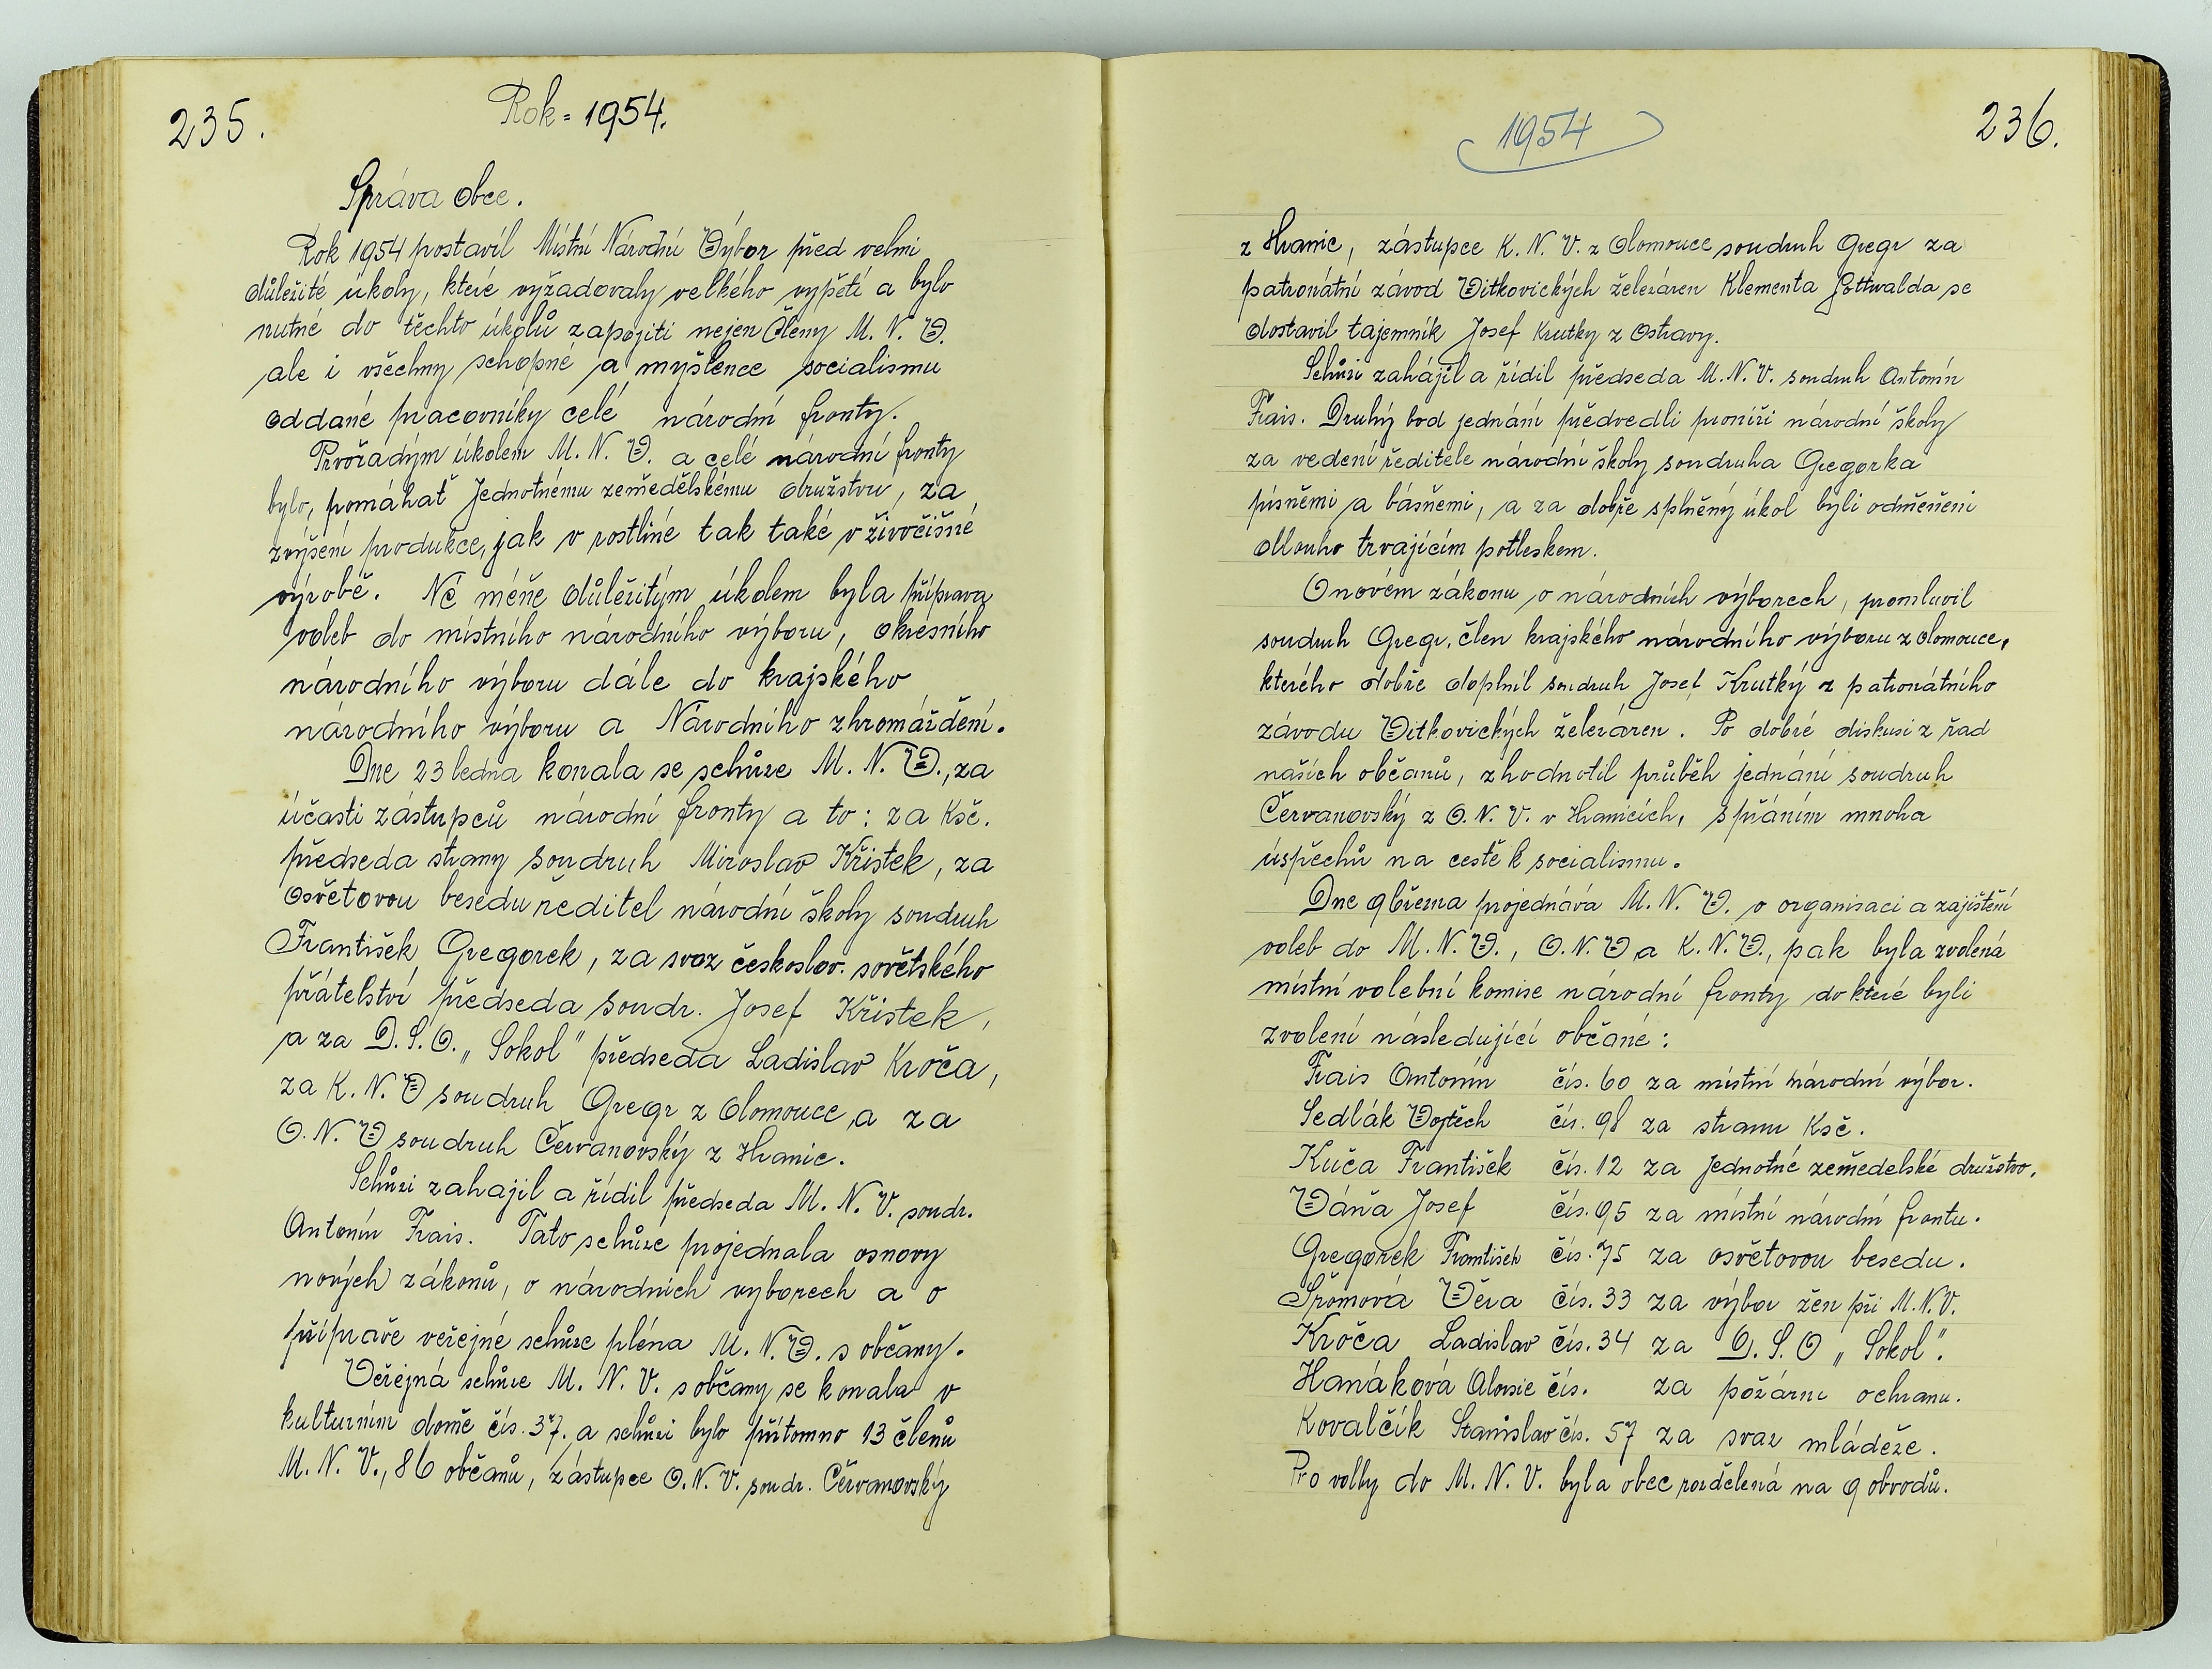 235.
Rok = 1954.
Správa obce.
Rok 1954 postavil Místní Národní Výbor před velmi
důležité úkoly, které vyžadovaly velkého vypětí a bylo
nutné do těchto úkolů zapojiti nejen členy M. N. V.
ale i všechny schopné a myšlence socialismu
oddané pracovníky celé národní fronty.
Prvořadým úkolem M. N. V. a celé národní fronty
bylo, pomáhať Jednotnému zemědělskému družstvu, za
zvýšení produkce, jak v rostliné tak také v živočišné
výrobě. Né méňe důležitým úkolem byla příprava
voleb do místního národního výboru, okresního
národního výboru dále do krajského
národního výboru a Národního zhromáždění.
Dne 23 ledna konala se schůze M. N. V., za
účasti zástupců národní fronty a to: za Ksč.
předseda strany soudruh Miroslav Křistek, za
osvětovou besedu ředitel národní školy soudruh
František Gregorek, za svaz českoslov. sovětského
přátelství předseda soudr. Josef Křistek,
a za D. S. O. „Sokol" předseda Ladislav Kroča,
za K. N. V soudruh Gregr z Olomouce, a za
O. N. V soudruh Červanovský z Hranic.
Schůzi zahajil a řídil předseda M. N. V. soudr.
Antonín Frais. Tato schůze projednala osnovy
nových zákonů, o národních vyborech a o
přípravě veřejné schůze pléna M. N. V. s občany.
Veřejná schůze M. N. V. s občany se konala v
kulturním domě čís. 37. a schůzi bylo přítomno 13 členů
M. N. V., 86 občanů, zástupce O. N. V. soudr. Červanovský
1954
236.
z Hranic, zástupce K. N. V. z Olomouce soudruh Gregr za
patronátní závod Vitkovických železáren Klementa Gottwalda se
dostavil tajemník Josef Krutky z Ostravy.
Schůzi zahájil a řídil předseda M. N. V. soudruh Antonín
Frais. Druhý bod jednání předvedli proníři národní školy
za vedení ředitele národní školy soudruha Gregorka
písněmi a básněmi, a za dobře splněný úkol byli odměňeni
dlouho trvajícím potleskem.
O novém zákonu o národních výborech, promluvil
soudruh Gregr, člen krajského národního výboru z Olomouce,
kterého dobře doplnil soudruh Josef Krutký z patronátního
závodu Vitkovických železáren. Po dobré diskusi z řad
našich občanů, zhodnotil průběh jednání soudruh
Červanovský z O. N. V. v Hranicích, s přáním mnoha
úspěchů na cestě k socialismu.
Dne 9 března projednává M. N. V. o organisaci a zajištění
voleb do M. N. V., O. N. V a K. N. V., pak byla zvolená
místní volební komise národní fronty do které byli
zvolení následující občané:
Frais Antonín čís. 60 za místní národní výbor.
Sedlák Vojtěch čís. 98 za stranu Ksč.
Kuča František čís. 12 za Jednotné zemědelské družstvo.
Váňa Josef čís. 95 za místní národní frontu.
Gregorek František čís. 75 za osvětovou besedu.
Šromová Věra čís. 33 za výbor žen při M. N. V.
Kroča Ladislav čís. 34 za D. S. O „Sokol".
Hanáková Aloisie čís. za požárni ochranu.
Kovalčík Stanislav čís. 57 za svaz mládeže.
Pro volby do M. N. V. byla obec rozdělená na 9 obvodů.